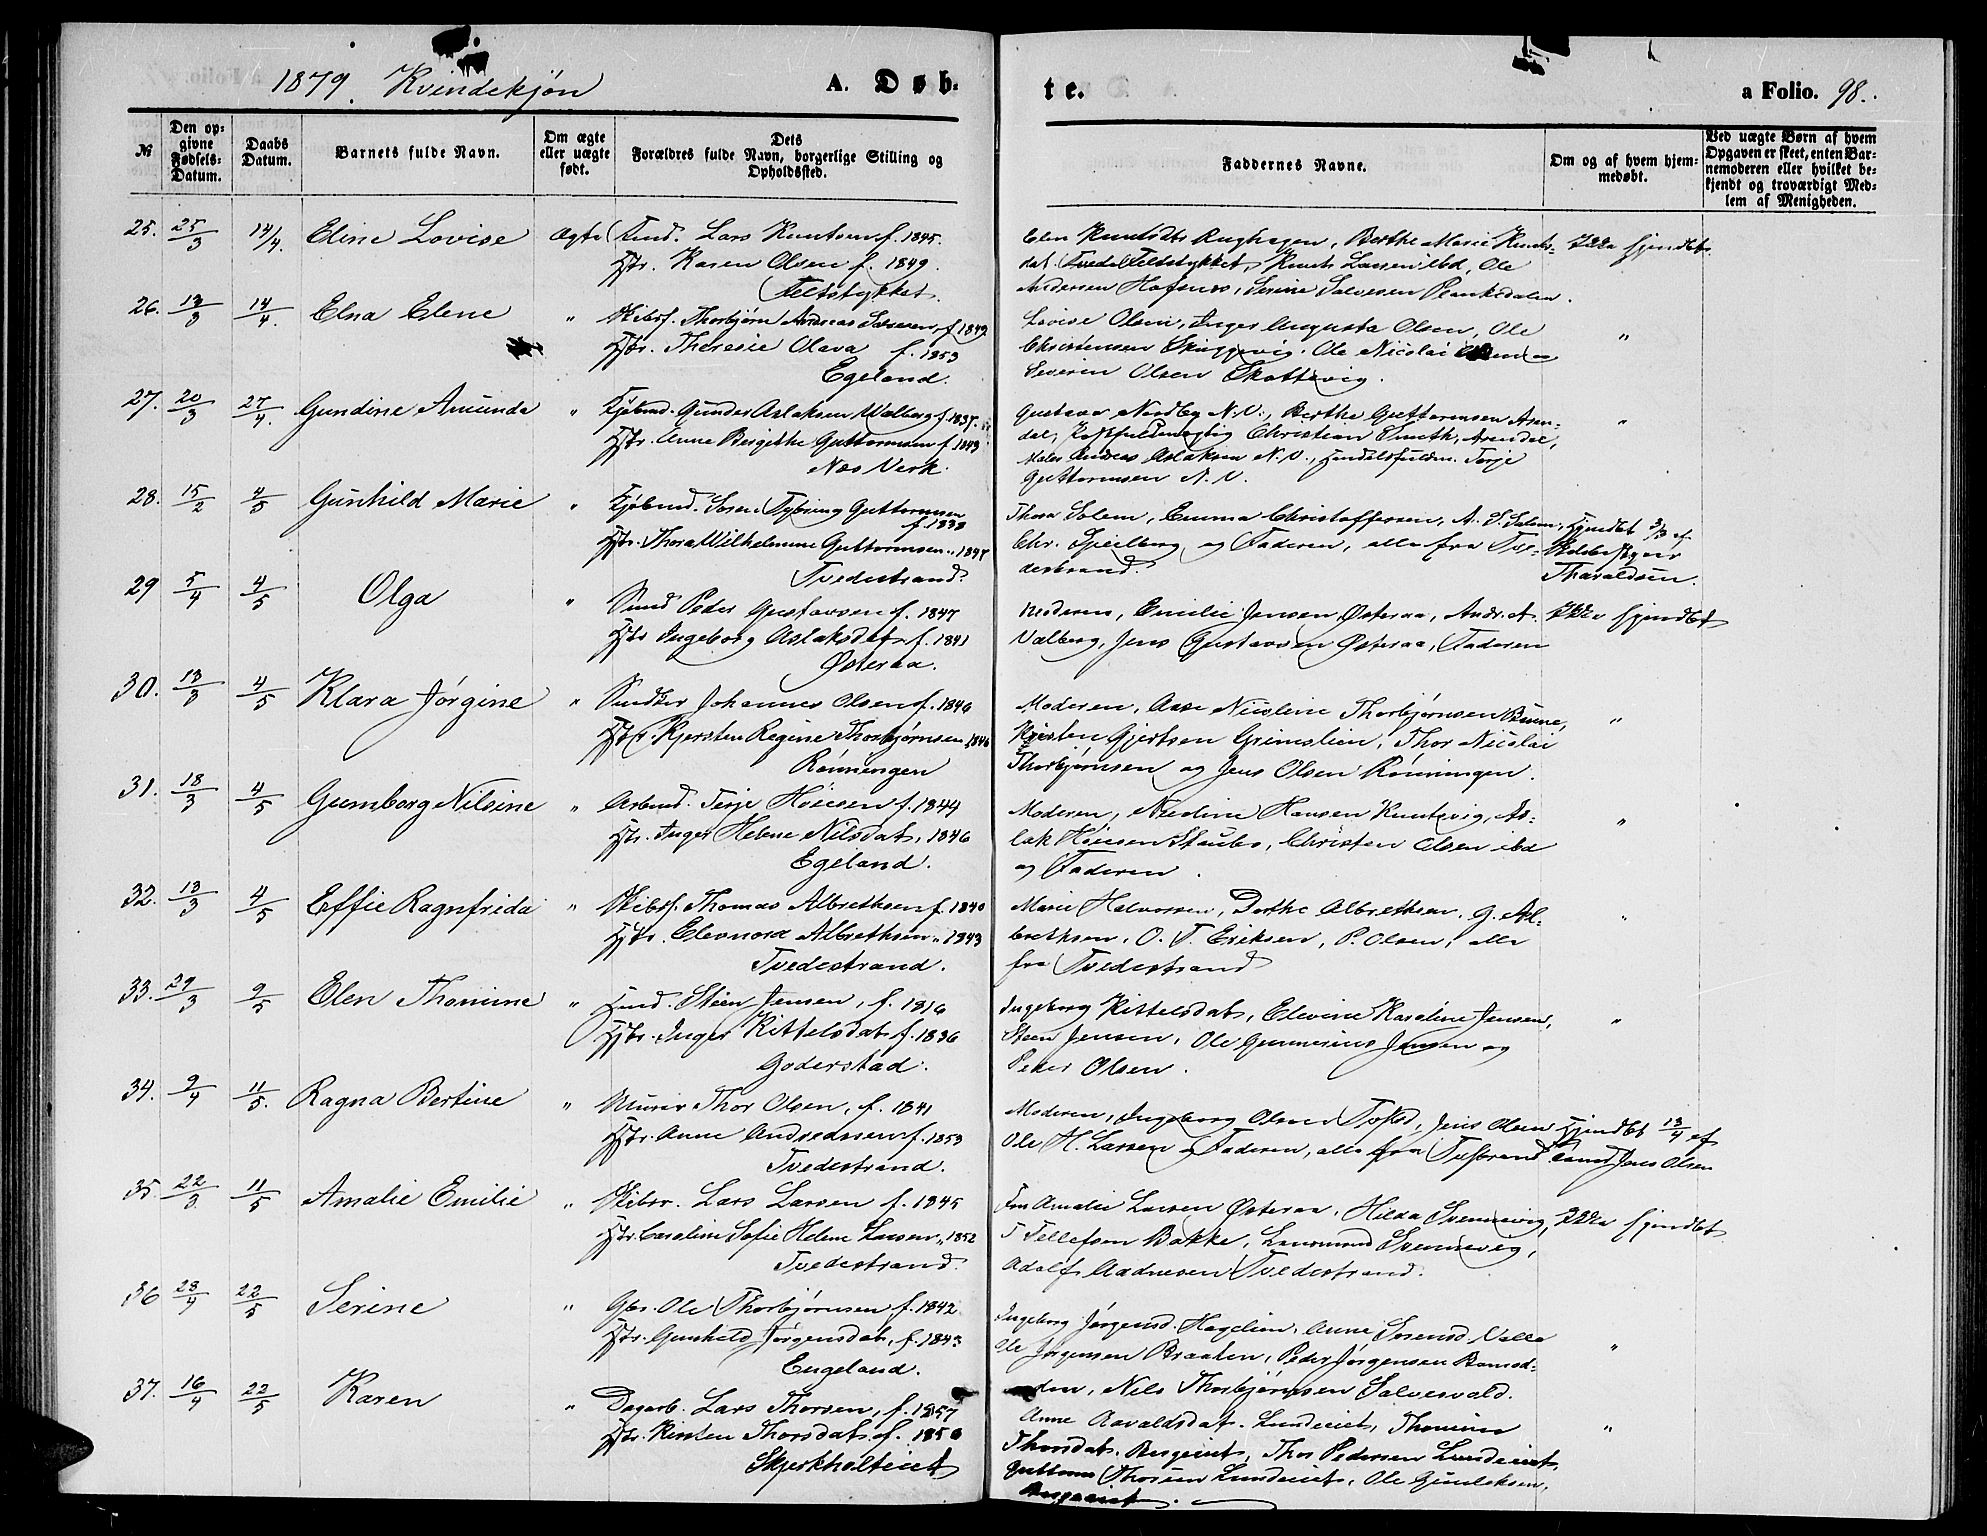 1879. Kvindekjøn
A. Døb-
te.
a Folio. 98.
№
Den op-
givne
Fødsels-
Datum.
Daabs
Datum.
Barnets fulde Navn.
Om ægte
eller uægte
født.
Dets
Forældres fulde Navn, borgerlige Stilling og
Opholdssted.
Faddernes Navne.
Om og af hvem hjem-
medøbt.
Ved uægte Børn af hvem
Opgaven er skeet, enten Bar-
nemoderen eller hvilket be-
kjendt og troværdigt Med-
lem af Menigheden.
25. 25/3 14/4 Eline Lovise Ægte Lars Knutsen f. 1845.
Htr. Karen Olsen f. 1849.
Feltstykket.
Elen Knutsdtr, Berthe Marie Knuts-
dat. Feltstykket, Knut Larsen ibd, Ole
Andersen, Serine Salvesen Plankedalen.
Ikke hjemdøbt.
26. 13/3 14/4. Elna Elene " Skibsf. Thorbjørn Andreas f. 1849
Htr. Theresie Olava f. 1853
Egeland.
Lovise Olsen, Inger Augusta Olsen, Ole
Christensen, Ole Nicolai
Severin Olsen Skottevig.
"
27. 20/3 27/4. Gundine Amunda " Kjøbmd. Gunder Aslaksen Walberg f. 1837.
Htr. Anne Bergithe Guttormsen f. 1843
Næs Verk.
Gustava Nordby N.V., Berthe Guttormsen Aren-
dal, Christian Smith, Arendal,
Andreas Aslaksen N.V., Terje
Guttormsen N.V.
"
28. 15/2 4/5 Gunhild Marie " Kjøbmd. Søren Guttormsen
f. 1838
Htr. Thora Wilhelmine Guttormsen " 1847
Tvedestrand.
Thora Solem, Emma Christoffersen, A. S. Solem,
Chr. Speilberg og Faderen, alle fra Tve-
destrand.
Hjemdøbt 3/3 af
Skolebestyrer
Tharaldsen.
29 5/4 4/5 Olga " Smed Peder Gustavsen f. 1847
Htr Ingeborg Aslaksdat. f. 1841
Østeraa.
Moderen, Emilie Jensen Østeraa, Andr. A.
Valberg, Jens Gustavsen Østeraa, Faderen
Ikke hjemdøbt
30. 13/3 4/5 Klara Jørgine " Johannes Olsen f. 1846
Htr. Kjersten Regine Thorbjørnsen 1846
Rønningen
Moderen, Aase Nicoline Thorbjørnsen,
Kristen Gjertsen Grimelien, Thor Nicolai
Thorbjørnsen og Jens Olsen Rønningen.
"
31. 18/3 4/5 Gumborg Nilsine " Arbmd. Terje f. 1844
Htr. Inger Helene Nilsdat, 1846
Egeland.
Moderen, Hansen, As-
lak Staubo, Christen Olsen ibd
og Faderen.
"
32. 13/3 4/5 Effie Ragnfrida " Skibsf. Thomas Albrethsen f. 1840
Htr. Eleonora Albrethsen " 1843
Tvedestrand.
Marie Halvorsen, Dorthe Albrethsen, G. Al-
brethsen, O. T. Eriksen, P. Olsen, alle
fra Tvedestrand
"
33. 29/3 9/5 Elen Thomine " Steen Jensen, f. 1816
Htr. Inger Kittelsdat f. 1836
Goderstad.
Ingeborg Kittelsdat, Elevine Karoline Jensen,
Steen Jensen, Ole Gunnerius Jensen og
Peder Olsen.
"
34. 9/4 11/5. Ragna Bertine " Murer Thor Olsen, f. 1841
Htr. Anne Andreassen f. 1853
Tvedestrand.
Moderen, Ingeborg Olsen, Jens Olsen
Ole H. Larsen og Faderen, alle fra
Hjemdøbt 13/4 af
Jens Olsen
35. 22/3 11/5 Amalie Emilie " Lars Larsen f. 1845
Htr. Caroline Sofie Helene Larsen " 1852
Tvedestrand.
Fru Amalie Larsen Østeraa, Hilda Svennevig,
T Tellefsen Bakke, Lensmand Svennevig,
Adolf Aadnesen Tvedestrand.
Ikke hjemdøbt
36 23/4 22/5 Serine " Gbr. Ole Thorbjørnsen f. 1842
Htr. Gunhild Jørgensdat, f. 1843
Engeland.
Ingeborg Jørgensd. Hagelien, Anne Sørensd Valle
Ole Jørgensen Braaten, Peder Jørgensen
Nils Thorbjørnsen Salvesvold.
"
37. 16/4 22/5 Karen " Dagarb. Lars Thorsen, f. 1857
Htr. Kirsten Thorsdat. f. 1850
Skjerkholteiet
Anne Aavaldsdat. Lundeeiet, Thomine
Thorsdat. Bergeeiet, Thor Pedersen Lundeeiet,
Guttorm Thorsen Lundeeiet, Ole Gundersen,
Bergeeiet.
"